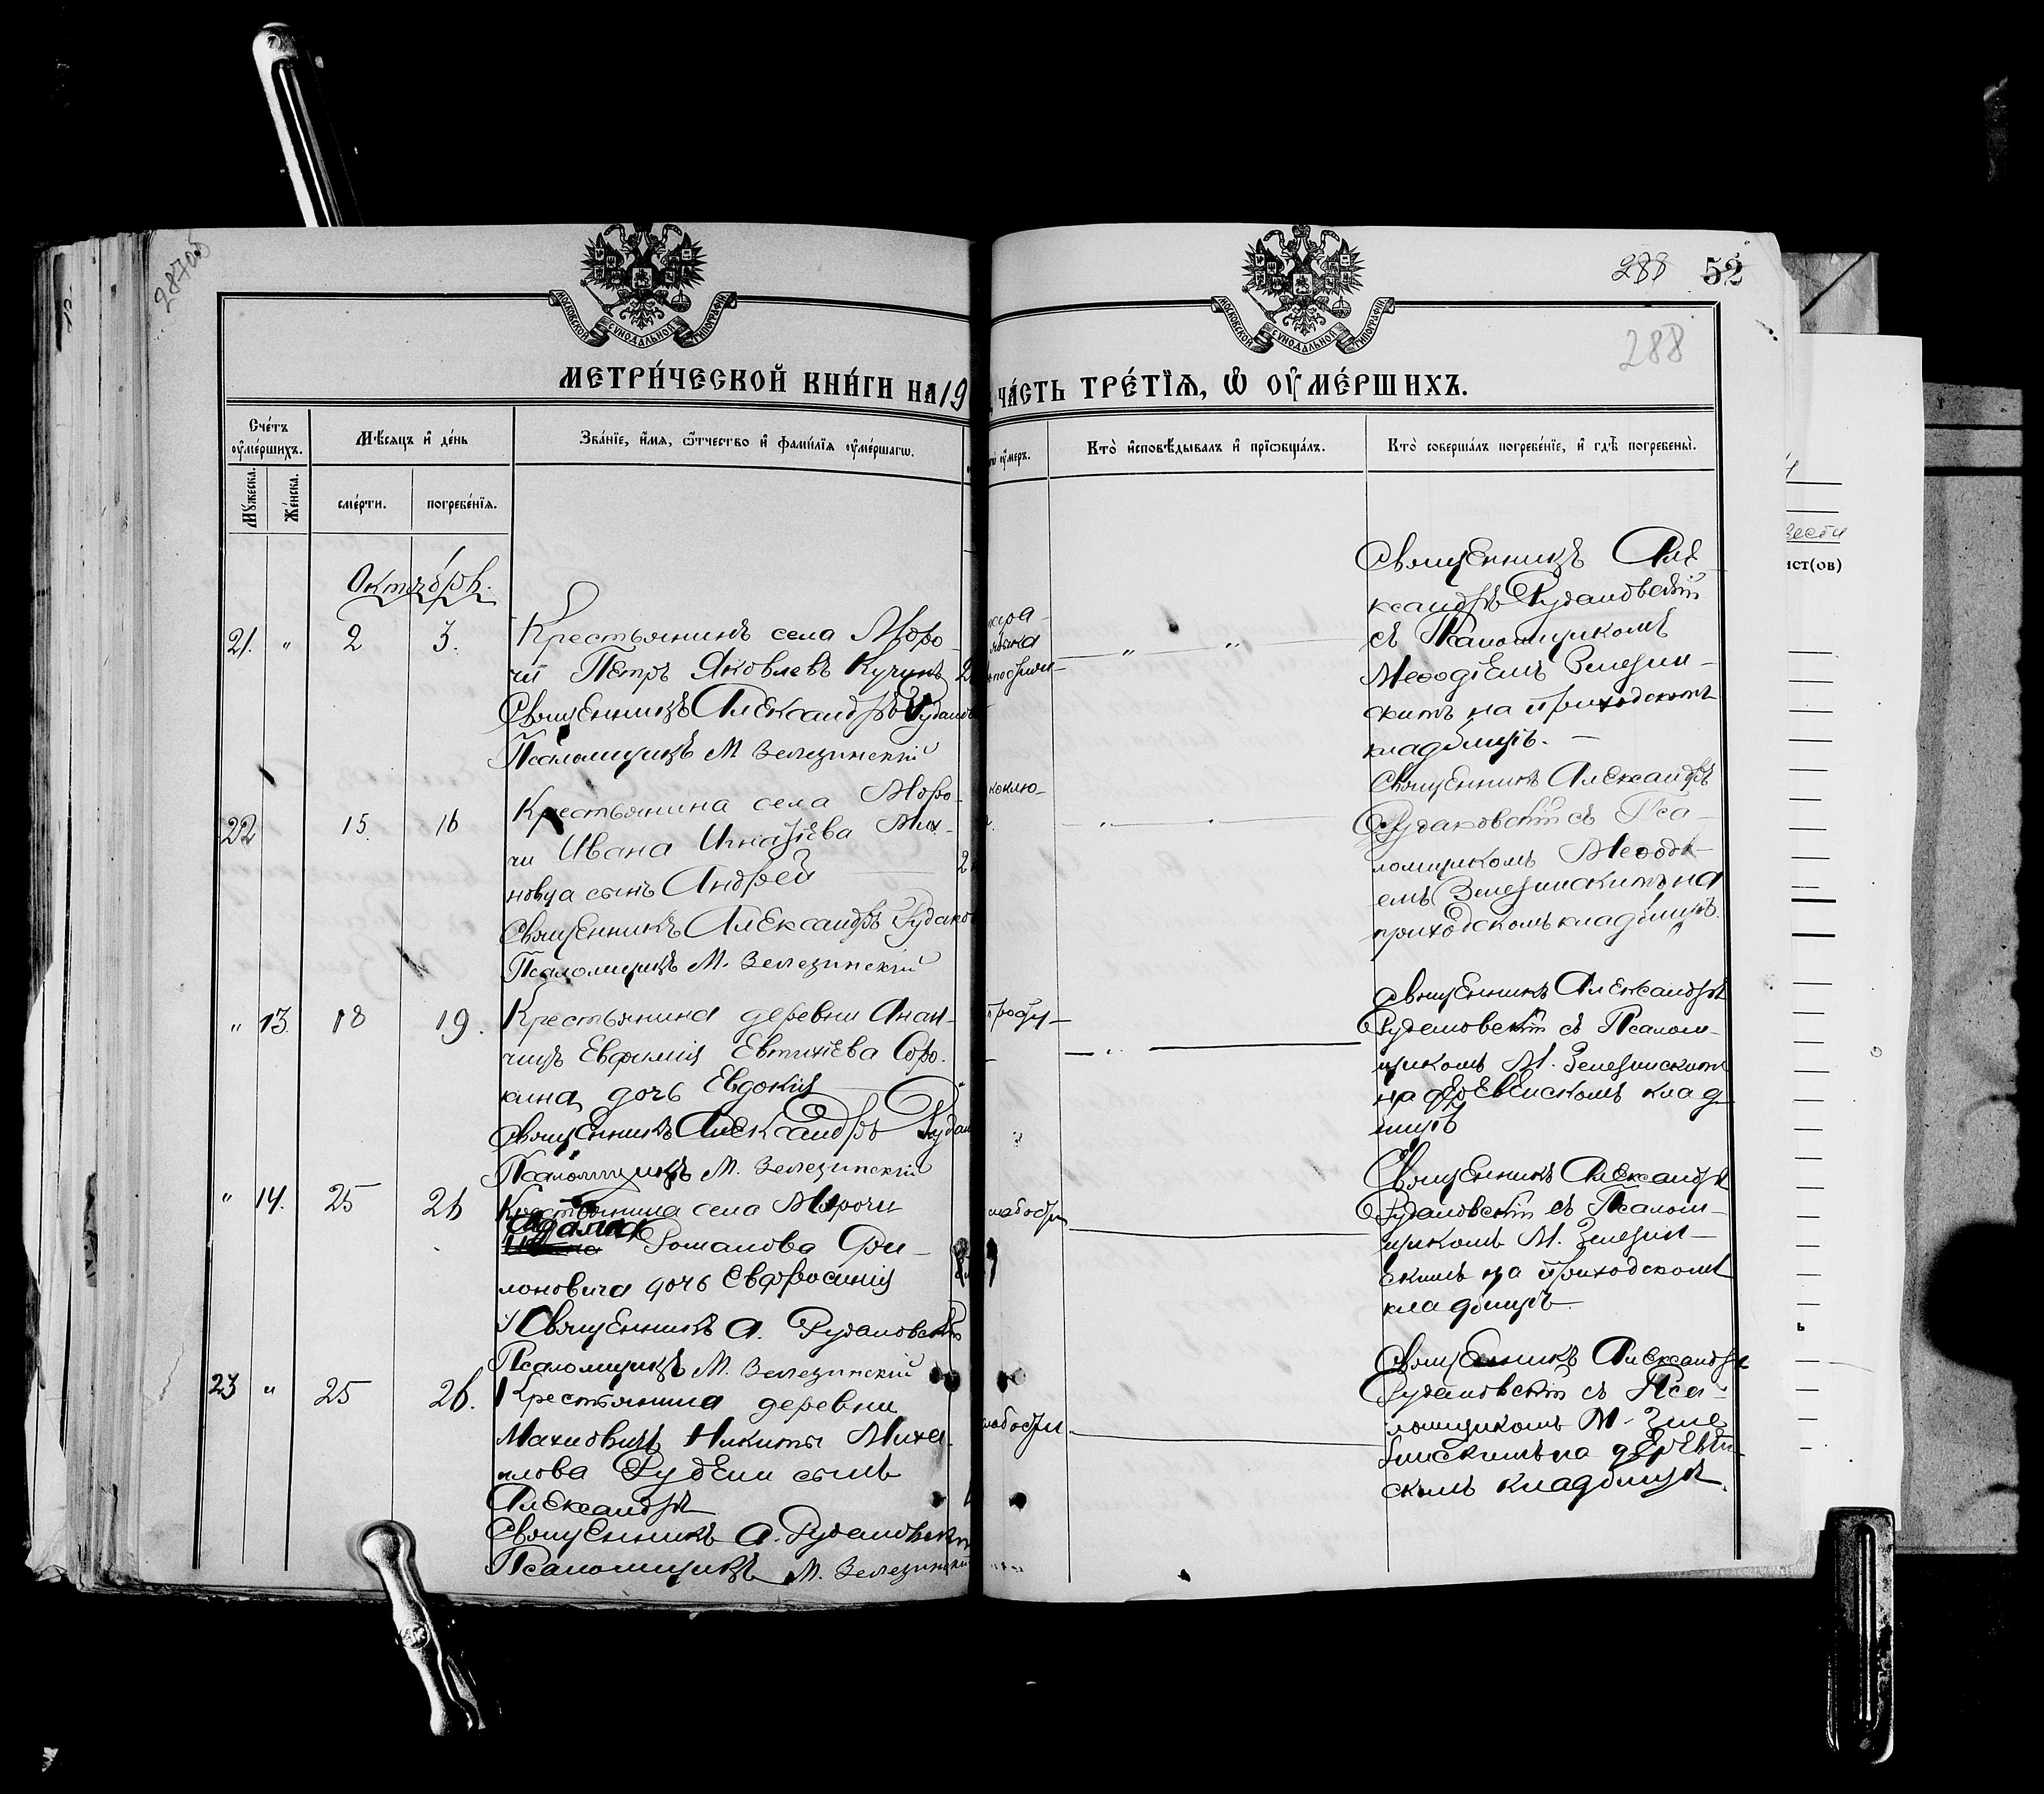 287об
288 52
288
МОСКОВСКОЙ СѴНОДАЛЬНОЙ ТИПОГРАФІИ
МОСКОВСКОЙ СѴНОДАЛЬНОЙ ТИПОГРАФІИ
МЕТРИ́ЧЕСКОЙ КНИ́ГИ НА 19
ЧА́СТЬ ТРЕ́ТЇѦ, Ѡ ОУМЕ́РШИХЪ.
Сче́тъ оумершихъ.
Мѣсяцъ и де́нь
Зва́нїе, и́мя, ѻтчество и фами́лїя оуме́ршагѡ.
оумеръ.
Кто̀ исповѣдывалъ и прїѡбща́лъ.
Кто̀ соверша́лъ погребе́нїе, и гдѣ погребены̀.
Мужеска.
Же́нска.
сме́рти.
погребе́нїя.
Октябрь.
21. " 2 3.
Крестьянинъ села Моро-
чи Петръ Яковлевъ Кучинъ
Священникъ Александръ Рудано
Псаломщикъ М Зелезинскій
" "
Священникъ Але-
ксандръ Рудановскій
съ Псаломщикомъ
Меѳодіемъ Зелезин-
скимъ на приходскомъ
кладбищѣ. –
22 15. 16
Крестьянина села Моро-
чи Ивана Игнатіева Мих-
новца сынъ Андрей
Священникъ Александръ Рудано
Псаломщикъ М. Зелезинскій
коклю-
Священникъ Александръ
Рудановскій съ Пса-
ломщикомъ Меѳоді-
емъ Зелезинскимъ на
приходскомъ кладбищѣ.
" 13 18 19.
Крестьянина деревни Анан-
чицъ Евфимія Евтихіева Соро-
кина дочь Евдокія
Священникъ Александръ Рудан
Псаломщикъ М. Зелезинскій
Священникъ Александръ
Рудановскій съ Псалом-
щикомъ М. Зелезинскимъ
на деревенскомъ клад-
бищѣ
" 14. 25 26
Крестьянина села Морочи
Адама Романова Фи-
лоновича дочь Евфросинія
Священникъ А. Рудановскій
Псаломщикъ М. Зелезинскій
слабости
Священникъ Александръ
Рудановскій съ Псалом-
щикомъ М. Зелезин-
скимъ на приходскомъ
кладбищѣ
23 " 25 26.
Крестьянина деревни
Махновичъ Никиты Миха-
илова Рудени сынъ
Александръ
Священникъ А. Рудановскій
Псаломщикъ М. Зелезинскій
слабости
Священникъ Александръ
Рудановскій съ Пса-
ломщикомъ М. Зеле-
зинскимъ на деревен-
скомъ кладбищѣ.
вести
ист(ов)